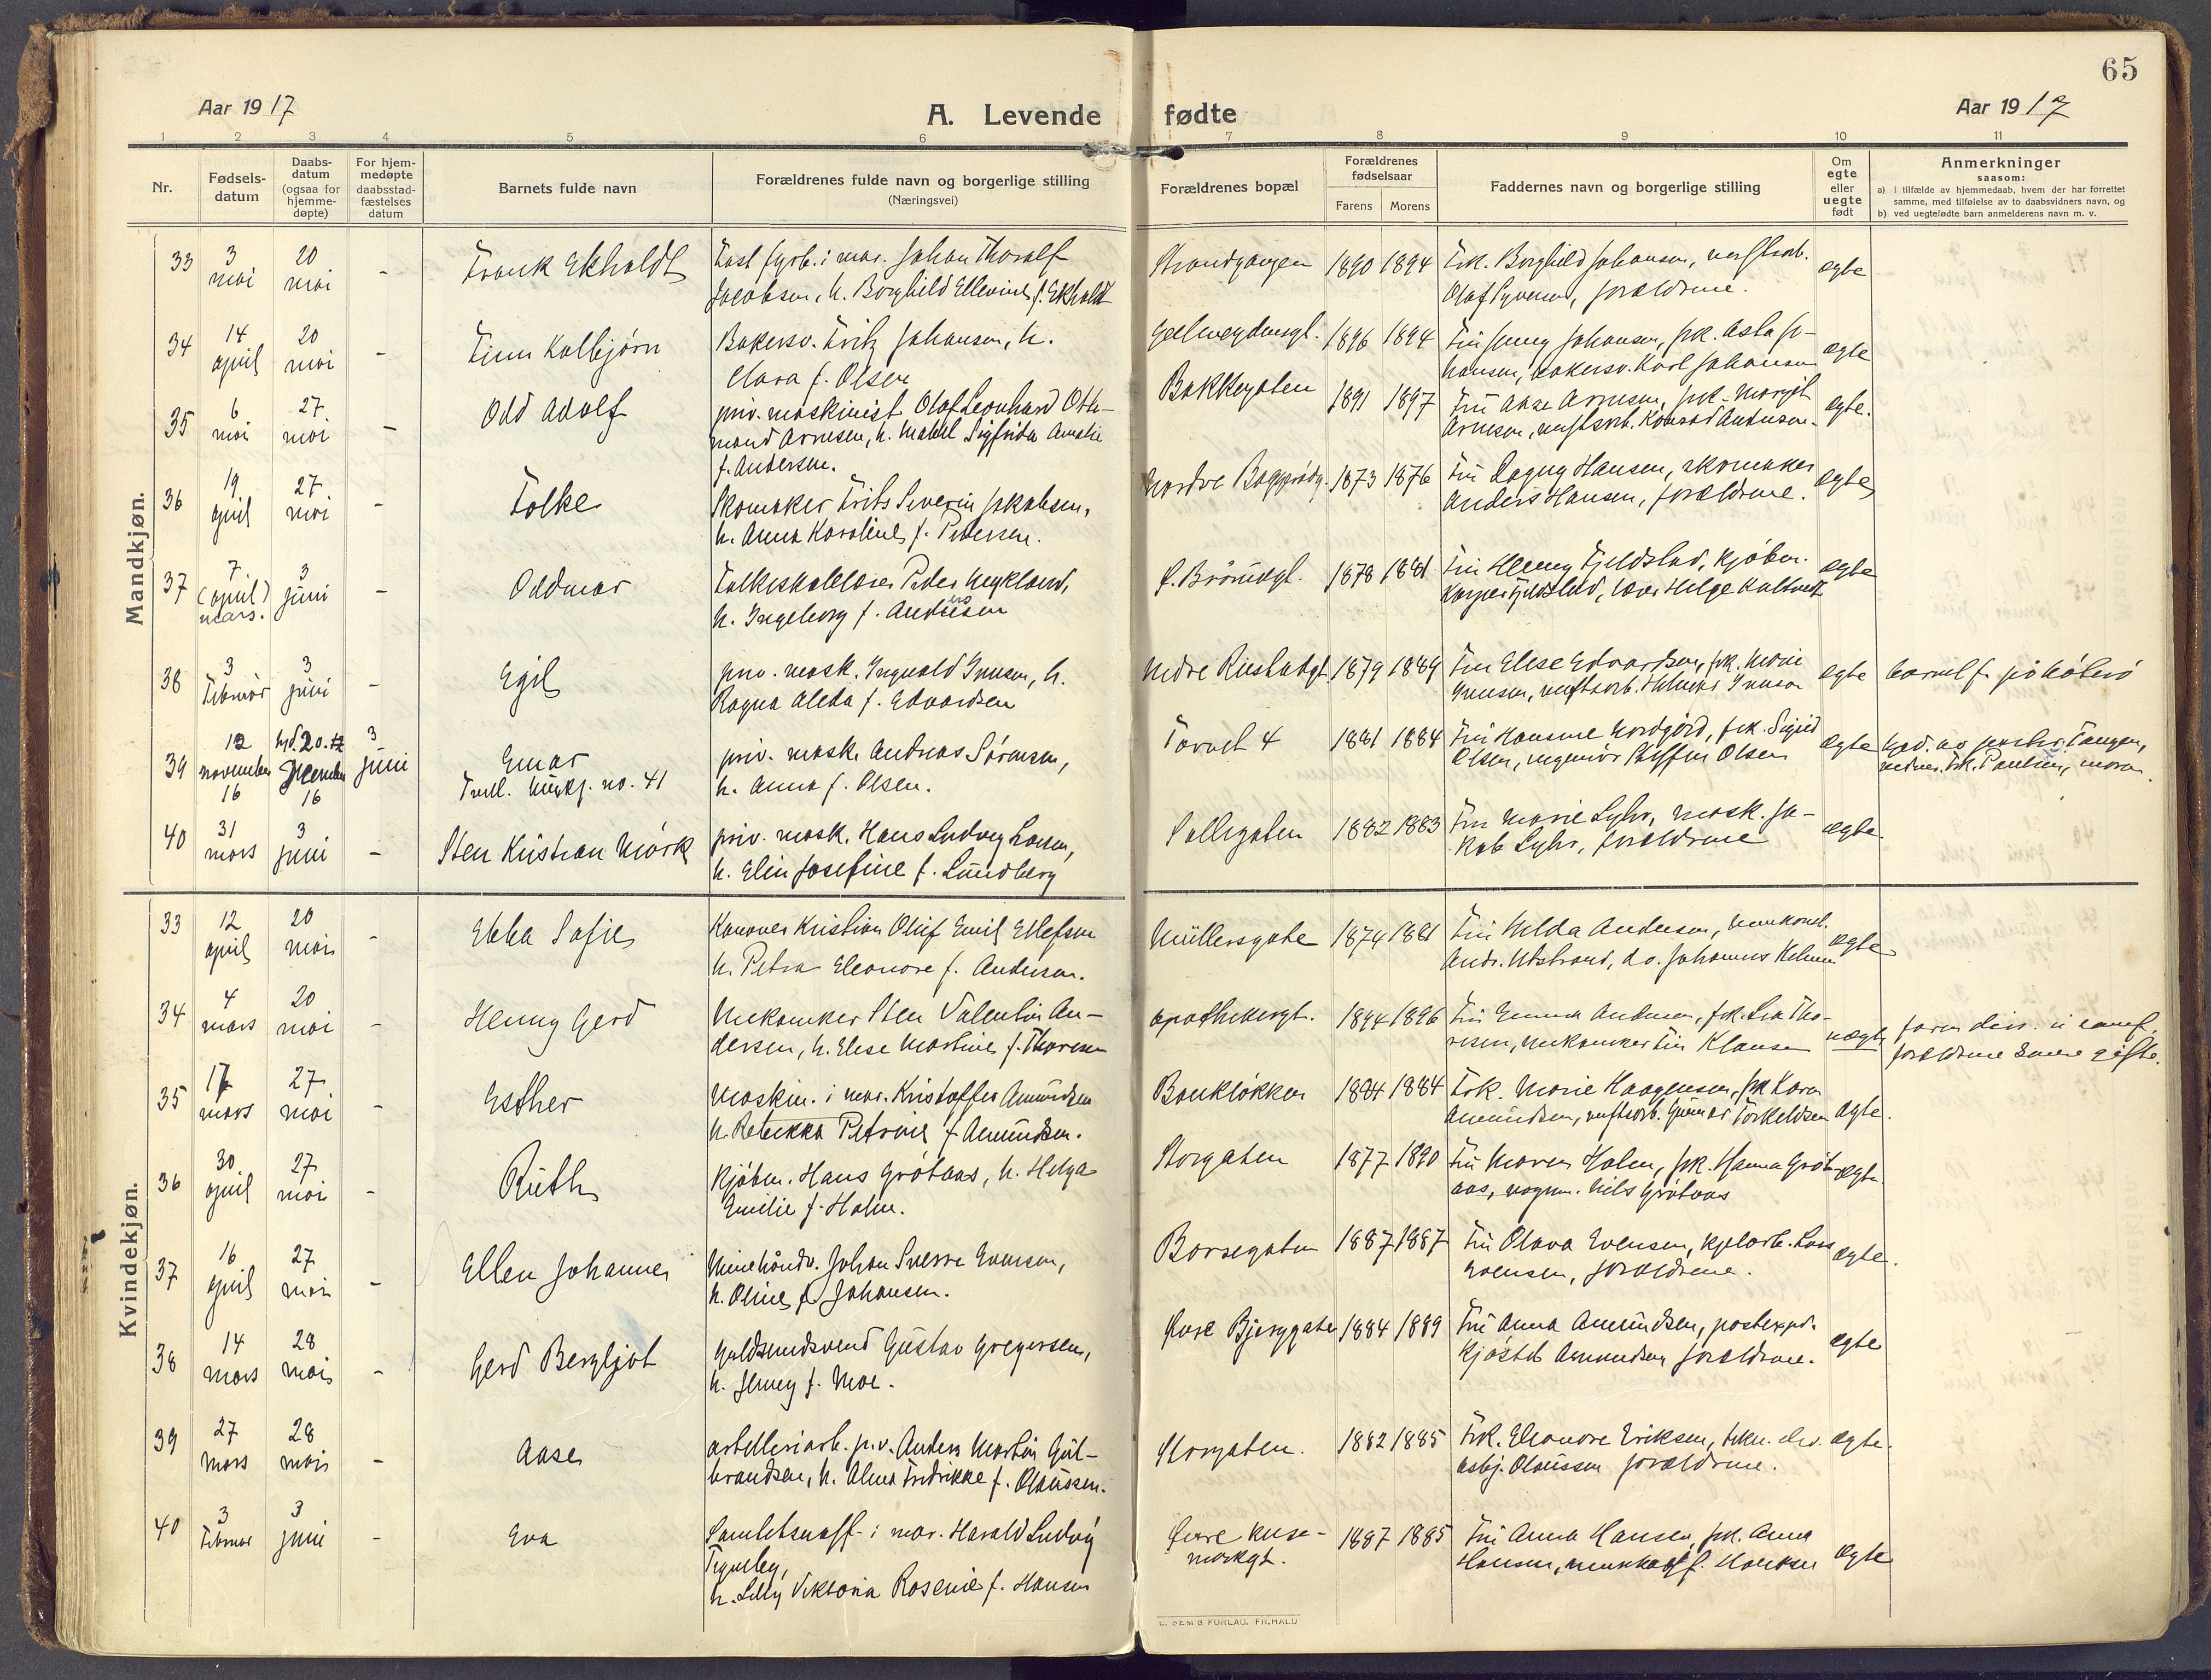 65
Aar 1917
A. Levende fødte
Aar 1917
1 2 3 4 5 6 7 8 9 10 11
Nr.
Fødsels-
datum
Daabs-
datum
(ogsaa for
hjemme-
døpte)
For hjem-
medøpte
daabsstad-
fæstelses
datum
Barnets fulde navn
Forældrenes fulde navn og borgerlige stilling
(Næringsvei)
Forældrenes bopæl
Forældrenes
fødselsaar
Farens Morens
Faddernes navn og borgerlige stilling
Om
egte
eller
uegte
født
Anmerkninger
saasom:
a) i tilfælde av hjemmedaab, hvem der har forrettet
samme, med tilføielse av to daabsvidners navn, og
b) ved uegtefødte barn anmelderens navn m. v.
Mandkjøn.
33 3 mai 20 mai - Frank Ekholdt
Johan Thoralf
Jacobsen, h. Borghild Ellevine f. Ekholdt
Strandgangen 1890 1894 Frk. Borghild Johansen,
Olaf Syversen, forældrene.
egte
34 14 april 20 mai - Finn Kolbjørn
Bakersv. Fritz Johansen, h.
Clara f. Olsen
1896 1894 Fru Jenny Johansen, frk. Asta Jo-
hansen, bakersv. Karl Johansen
egte
35 6 mai 27 mai - Odd Adolf
priv. maskinist Olaf Leonhard Oth-
mand Arnesen, h. Mabel Sigfrida Amalie
f. Andersen.
Bakkegaten 1891 1897 Fru Aase Arnesen, frk. Margit
Arnesen, verftsarb. Konrad Andersen.
egte.
36 19 april 27 mai - Folke
Skomaker Frits Severin Jakobsen,
h. Anna Karoline f. Pedersen.
Nordre 1873 1876 Fru Dagny Hansen, skomaker
Anders Hansen, forældrene.
egte
37 7 (april) mars. 3 juni - Oddmar
Folkeskolelærer Peder Mykland,
h. Ingeborg f. Andersen
1878 1881 Fru Henny Fjeldstad, kjøbm.
Kasper Fjeldstad, lærer Helge
egte
38 3 Februar 3 juni - Egil
priv. mask. Ingvald Iversen, h.
Ragna Aleda f. Edvardsen
Nedre 1879 1889 Fru Elise Edvardsen, frk. Marie
Iversen, verftsarb. Iversen
egte barnet f. på
39 12 november 16 hjd. 20. december 16 3 juni
Einar
Tvill. no. 41
priv. mask. Andreas Sørensen,
h. Anna f. Olsen.
Torvet 4 1881 1884 Fru Hansine Nordgård, frk. Sigrid
Olsen, ingeniør Steffen Olsen
egte
hjd. av Tangen,
40 31 mars 3 juni - Sten Kristian Mörk
priv. mask. Hans Ludvig Larsen,
h. Elin Josefine f. Lundberg
Solligaten 1882 1883 Fru Marie Lyhr, mask. Ja-
kob Lyhr, forældrene
egte
Kvindekjøn.
33 12 april 20 mai - Ebba Sofie
Kanoner Kristian Oluf Emil Ellefsen
h. Petra Eleonore f. Andersen.
Müllersgate 1874 1881 Fru Hilda Andersen,
Andr. do. Johannes
egte
34 4 mars 20 mai - Henny Gerd
Mekaniker Sten Valentin An-
dersen, h. Elise Martine f. Thoresen
Apothekergt. 1894 1896 Fru Emma Andersen, frk. Lea Tho-
resen, mekaniker Klausen
uegte
forældrene senere gifte.
35 17 mars 27 mai - Esther
Maskin. i mar. Kristoffer Amundsen
h. Rebekka Petrine f. Amundsen.
Bankløkken 1884 1884 Frk. Marie Haagensen, frk Karen
Amundsen, verftsarb. Gunnar Torkeldsen
egte.
36 30 april 27 mai - Ruth
Kjøbm. Hans Grötaas, h. Helga
Emilie f. Holm.
Storgaten 1877 1890 Fru Maren Holm, frk. Hanna Gröt-
aas, vognm. Nils Grötaas
egte.
37 16 april 27 mai - Ellen Johanne
Minehåndv. Johan Sverre Evensen,
h. Oline f. Johansen.
Borsegaten 1887 1887 Fru Olava Evensen, kjelarb. Lars
Evensen, forældrene.
egte.
38 14 mars 28 mai - Gerd Bergljot
Guldsmedsvend Gustav Gregersen,
h. Jenny f. Moe.
Øvre Bjerggate 1884 1889 Fru Anna Amundsen, postexpd.
Kjöstel Amundsen forældrene.
egte
39 27 mars 28 mai - Aase
artilleriarb. p.v. Anders Martin Gul-
brandsen, h. Alma Fredrikke f. Olaussen.
Storgaten. 1882 1885 Frk. Eleonore Eriksen, tekn. elev.
Asbj. Olaussen forældrene.
egte.
40 3 Februar 3 juni - Eva
i mar. Harald Ludvig
h. Lilly Viktoria Rosenie f. Hansen
Øvre
1887 1885 Fru Anna Hansen, frk. Anna
Hansen,
egte
E. SEM'S FORLAG. FR.HALD